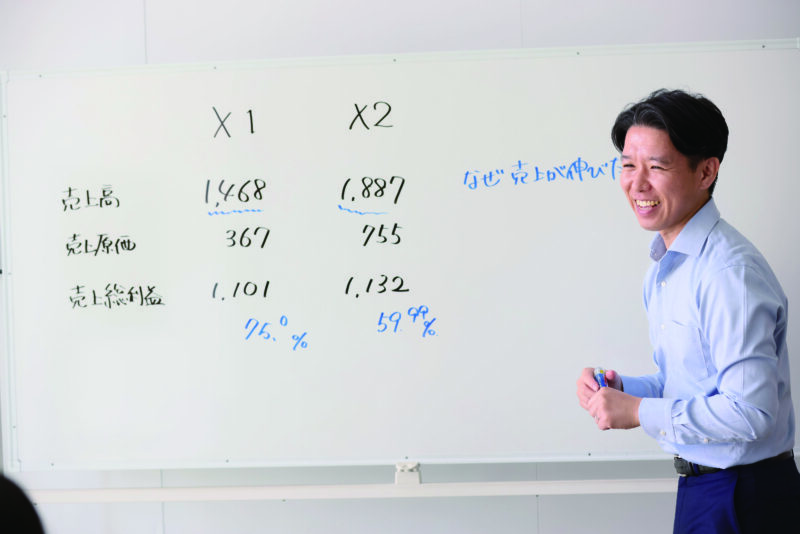 X1 X2
売上高 1,468 1,887 なぜ売上が伸びた
売上原価 367 755
売上総利益 1,101 1,132
75.0% 59.99%